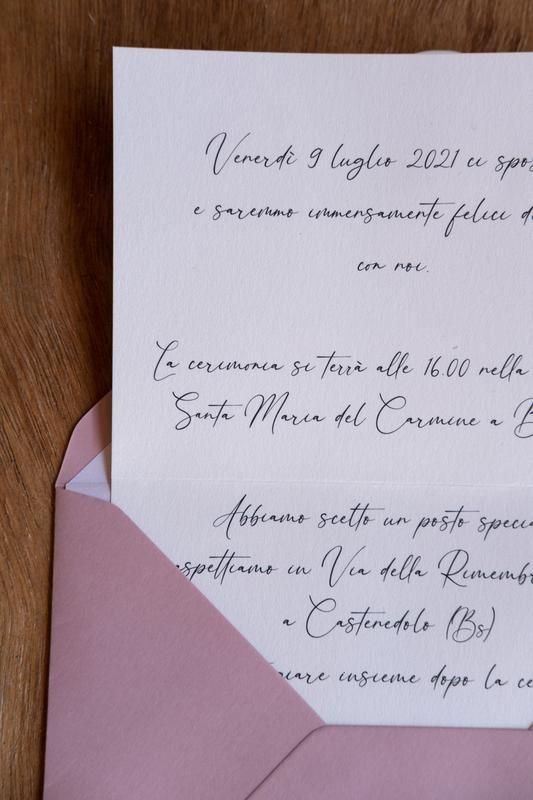 Venerdì 9 luglio 2021 ci spos
e saremmo immensamente felici d
con noi.
La cerimonia si terrà alle 16.00 nella
Santa Maria del Carmine a B
Abbiamo scelto un posto specia
aspettiamo in Via della Rimembr
a Castenedolo (Bs)
insieme dopo la ce